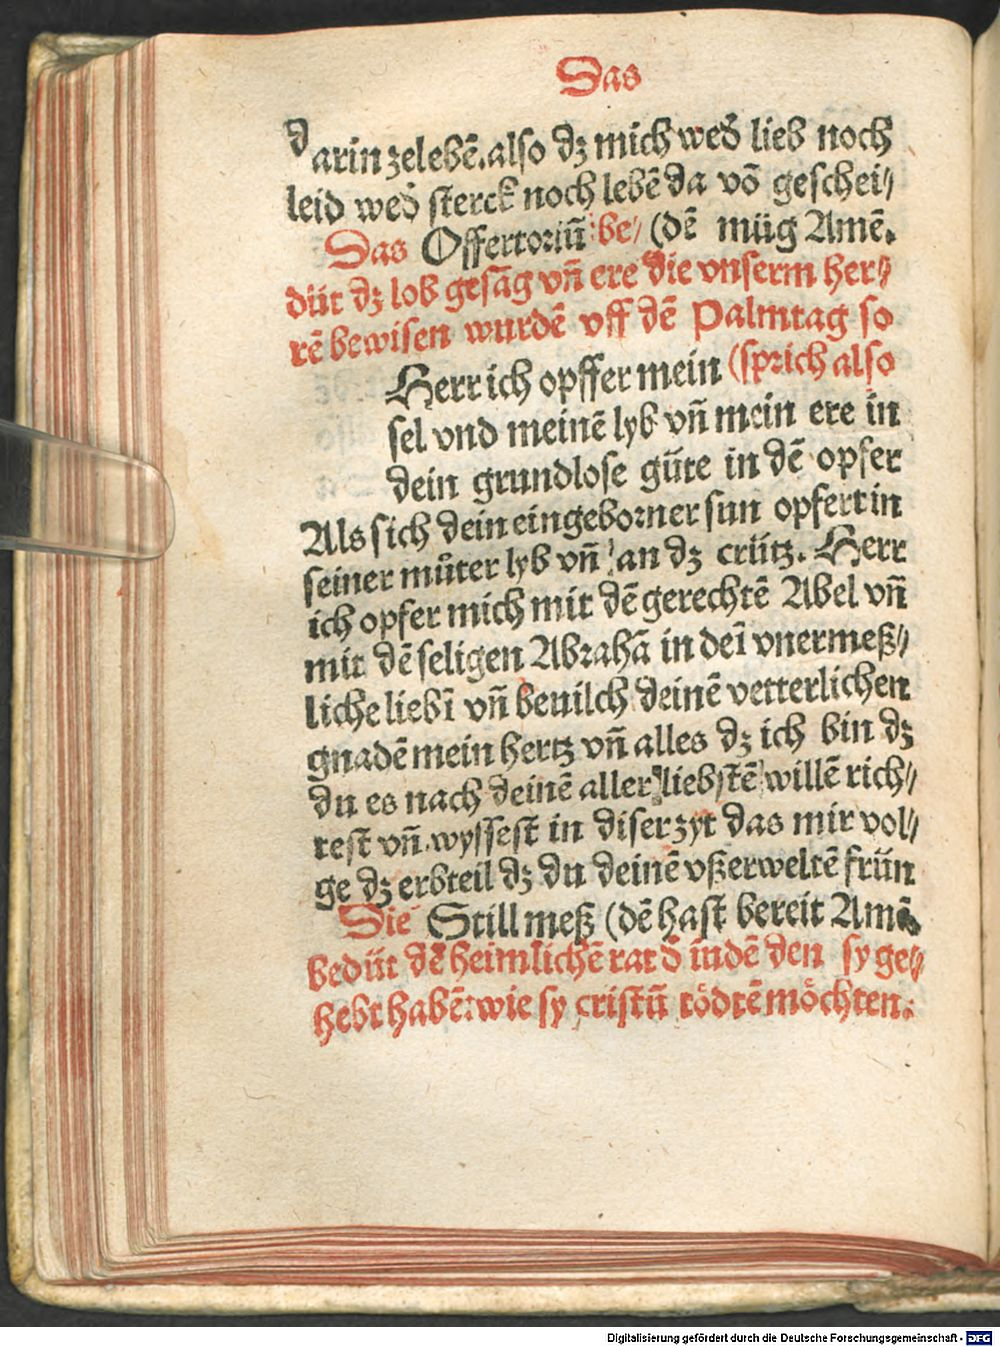 Das
darin zelebē. also dz mich wed̄ lieb noch
leid wed̄ sterck noch lebē da vō geschei/
Das Offertoriū be/ (dē müg Amē.
düt dz lob gesāg vñ ere die vnserm her/
rē bewisen wurdē vff dē Palmtag so
Herr ich opffer mein (sprich also
sel vnd meinē lyb vñ mein ere in
dein grundlose gůte in dē opfer
Als sich dein eingeborner sun opfert in
seiner můter lyb vñ an dz crütz. Herr
ich opfer mich mit dē gerechtē Abel vñ
mit dē seligen Abrahā in deī vnermeß/
liche liebī vñ beuilch deinē vetterlichen
gnadē mein hertz vñ alles dz ich bin dz
du es nach deinē aller liebstē willē rich/
test vñ wyssest in diser zyt das mir vol/
ge dz erbteil dz du deinē vßerweltē frün
Die Still meß (dē hast bereit Amē.
bedüt dē heimlichē rat d̄ indē den sy ge/
hebt habē: wie sy cristū tödtē möchten.
Digitalisierung gefördert durch die Deutsche Forschungsgemeinschaft - DFG